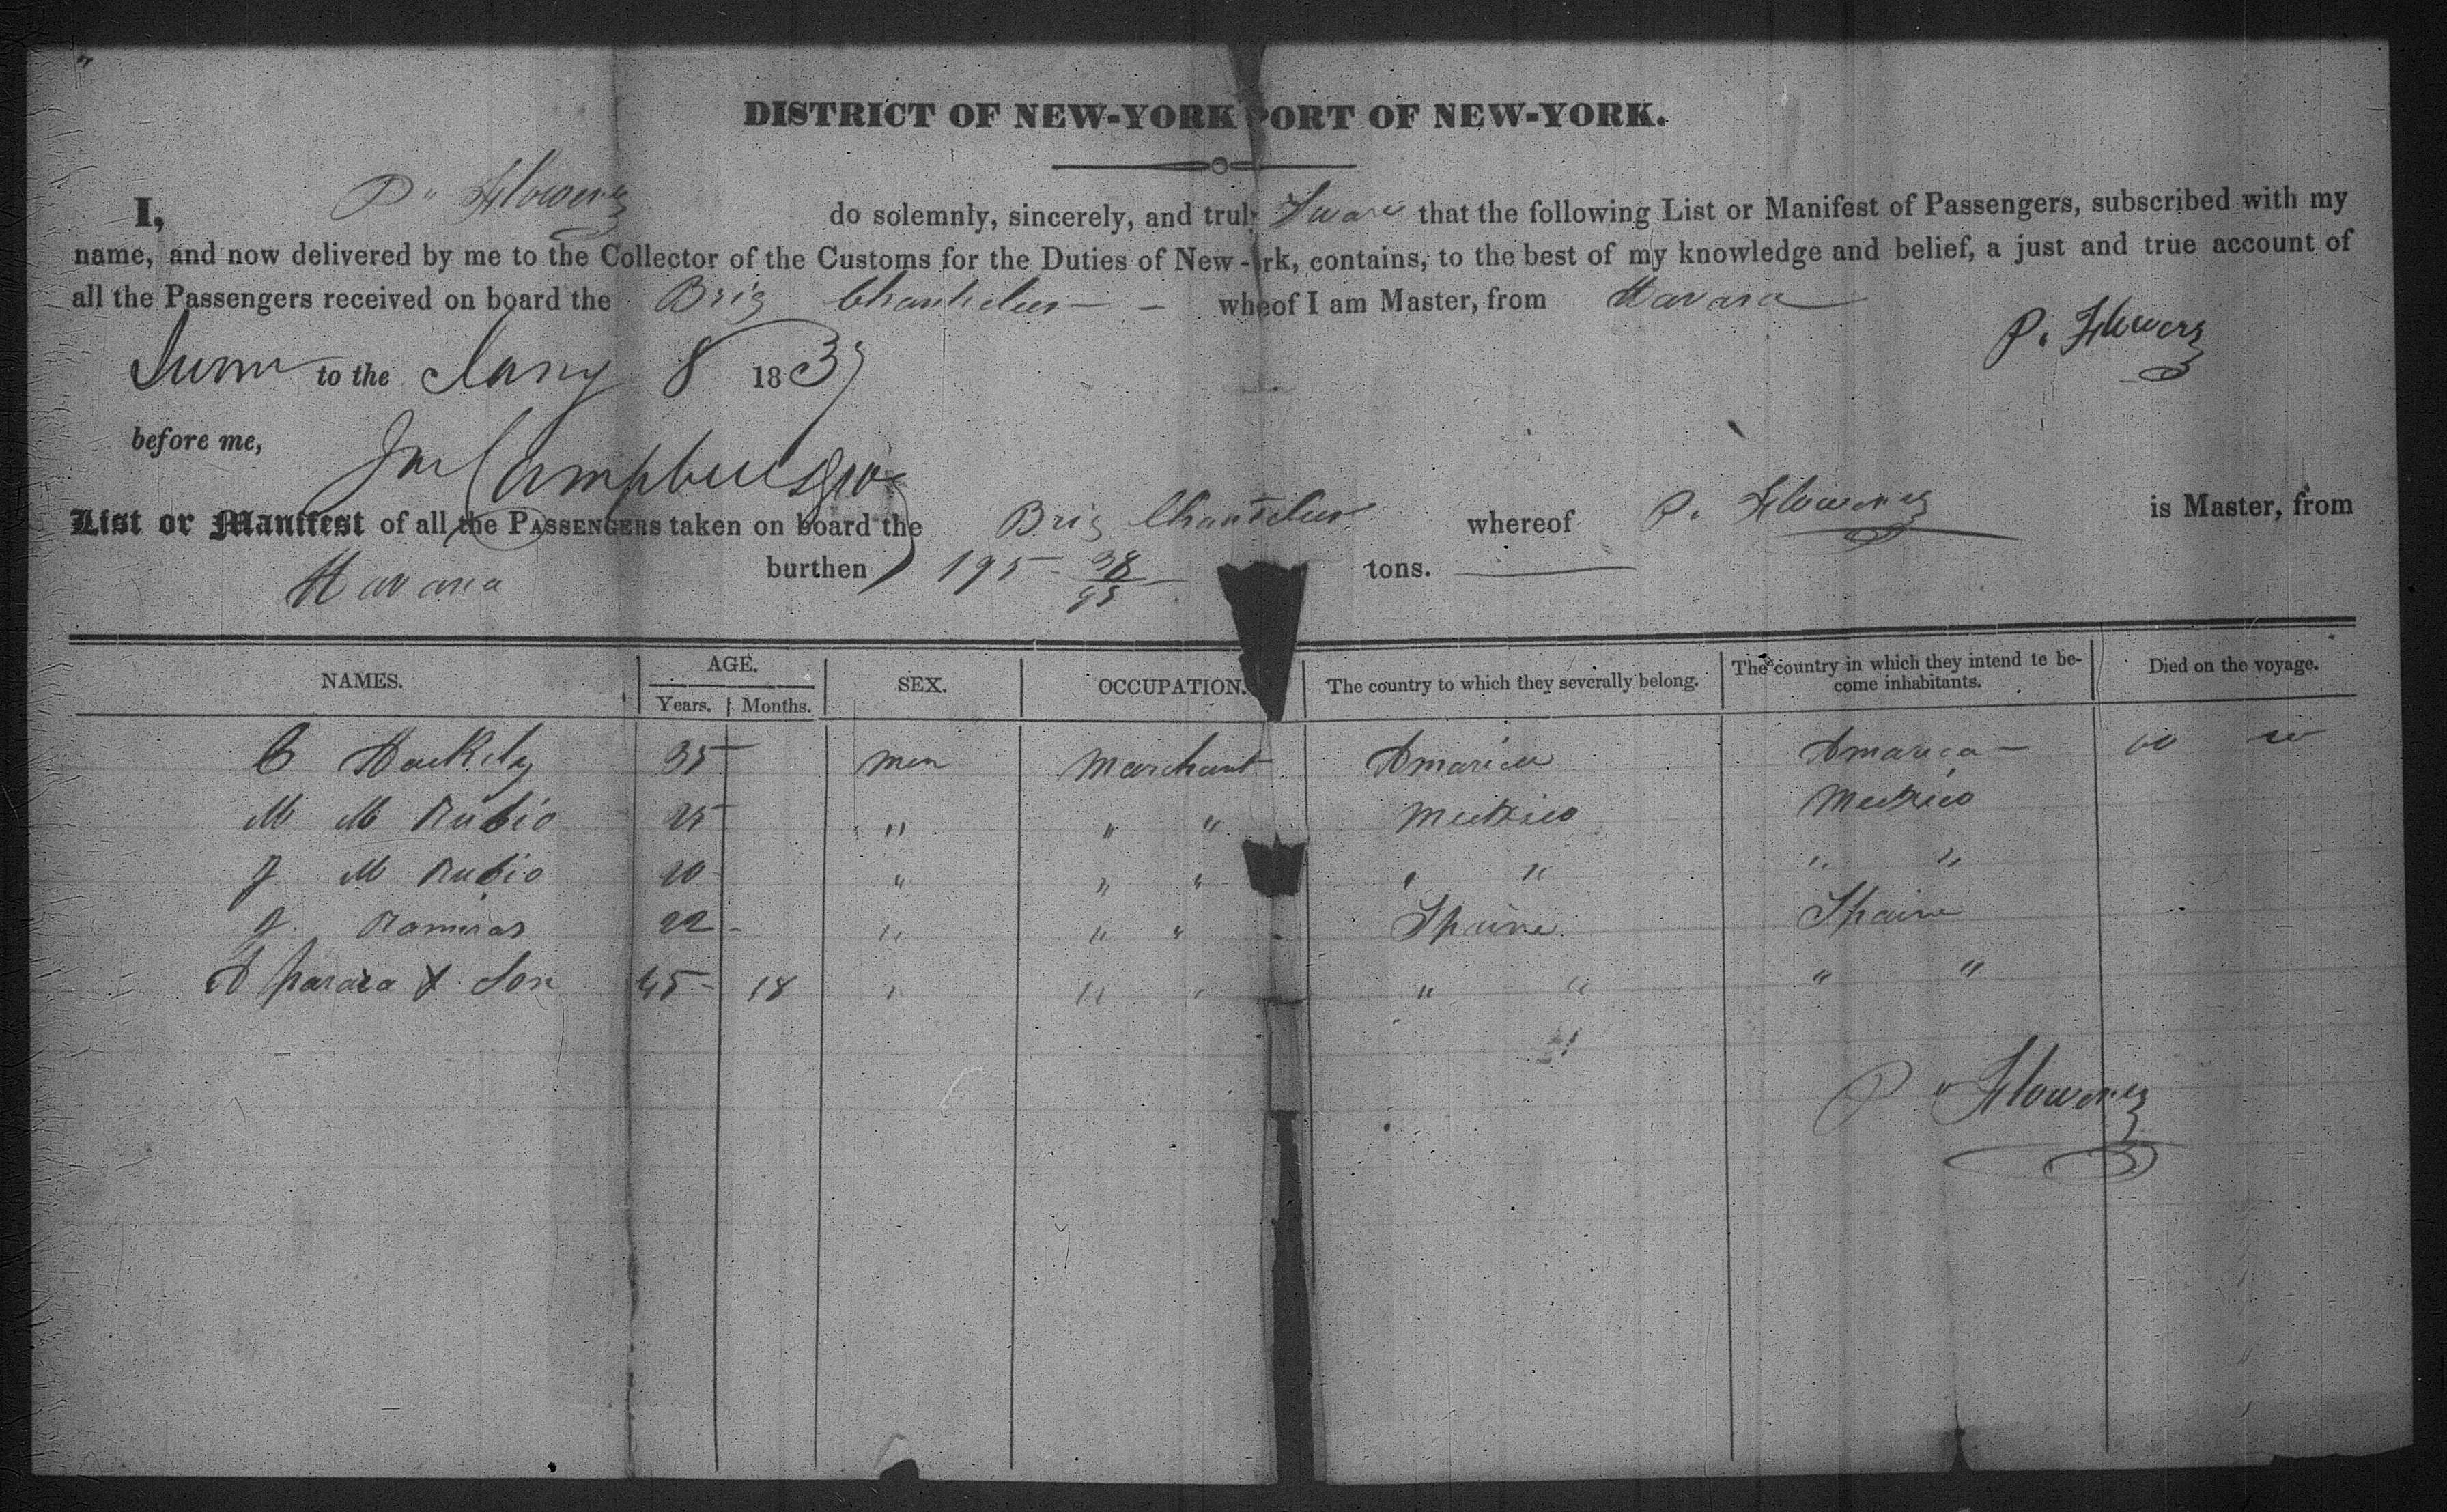 DISTRICT OF NEW-YORK PORT OF NEW-YORK.
I, P" Flowers do solemnly, sincerely, and truly Sware that the following List or Manifest of Passengers, subscribed with my
name, and now delivered by me to the Collector of the Customs for the Duties of New-rk, contains, to the best of my knowledge and belief, a just and true account of
all the Passengers received on board the Brig wheof I am Master, from Havana
to the Jany 8 183 P. Flowers
before me,
Campbell
List or Manifest of all the PASSENGERS taken on board the Brig whereof P. Flowers is Master, from
Havana burthen 195 38/95 tons.
NAMES. AGE. SEX. OCCUPATION. The country to which they severally belong. The country in which they intend to be-come inhabitants. Died on the voyage.
Years. Months.
C 35 men Marchant America America
M M Rubio 25 " " " Meckico Meckico
J M Rubio 20 " " " " " " "
J. Ramiras 22 " " " Spaine Spaine
& Son 45 18 " " " " " " "
P" Flowers